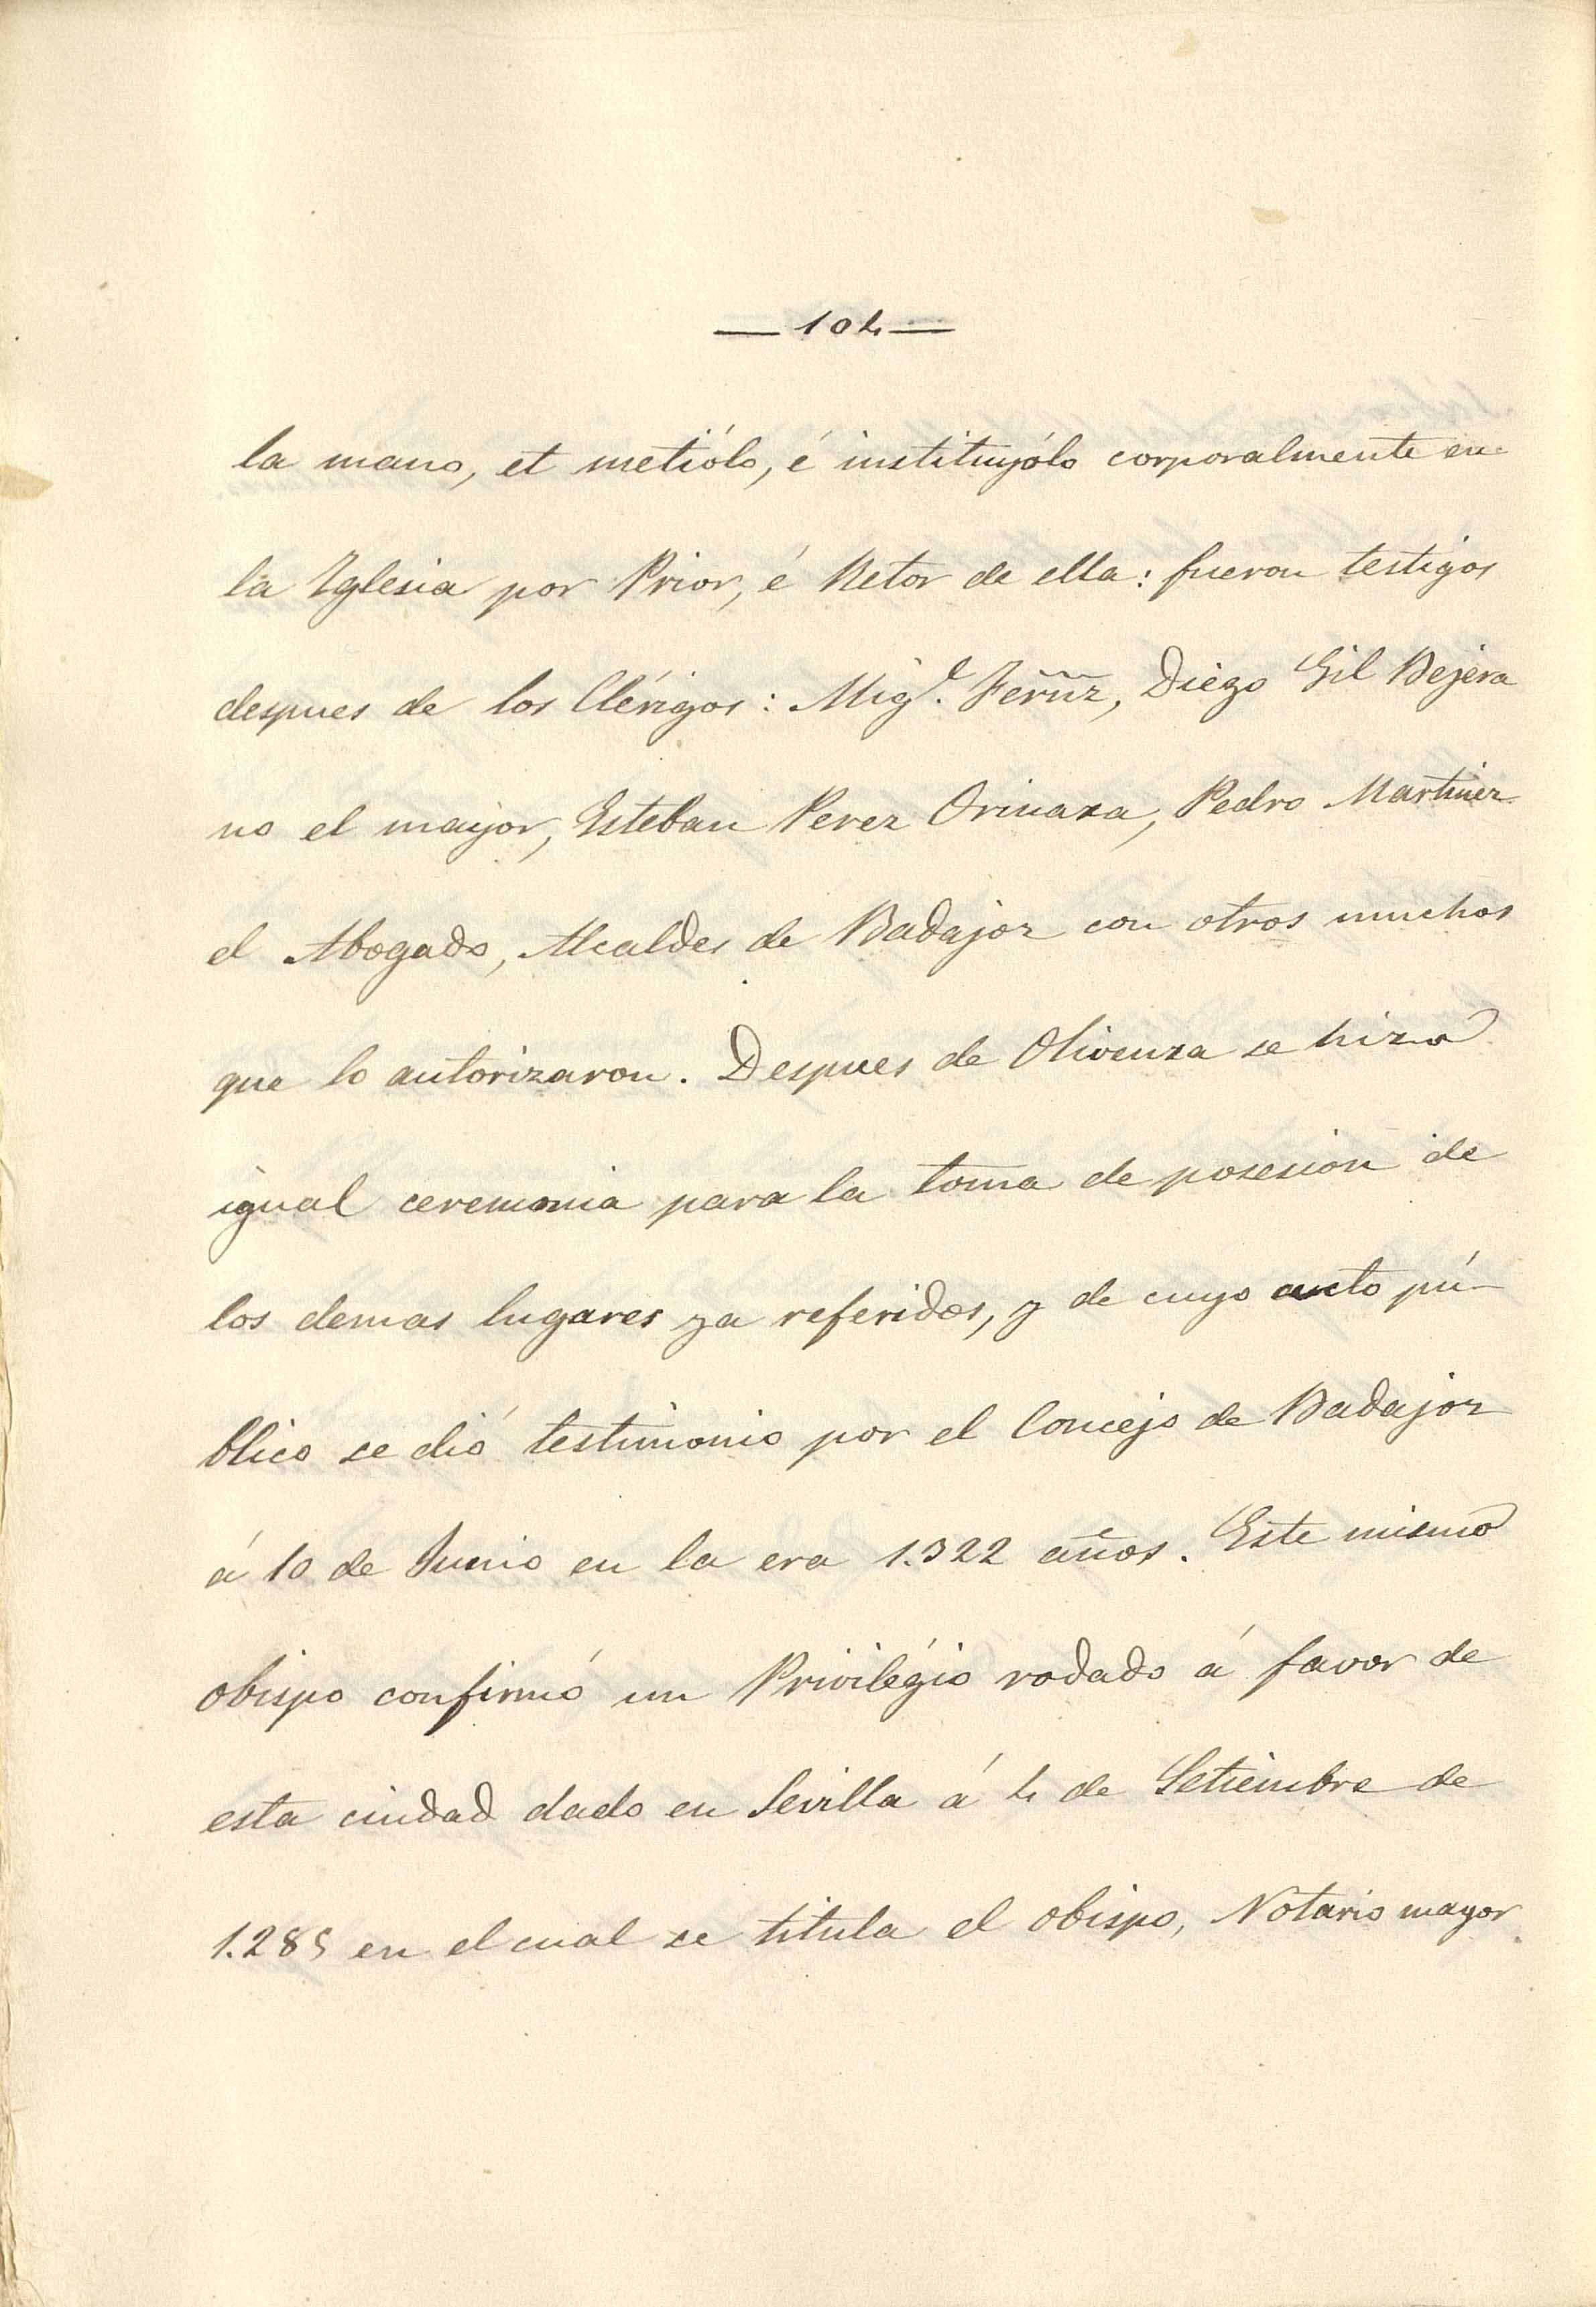 — 104 —
la mano, et metiólo, é instituyólo corporalmente en
la Iglesia por Prior, é Retor de ella: fueron testigos
despues de los Clérigos: Mig.l Ferñz, Diego Gil Bejera
no el mayor, Esteban Perez Orinaza, Pedro Martinez
el Abogado, Alcaldes de Badajoz con otros muchos
que lo autorizaron. Despues de Olivenza se hizo
igual ceremonia para la toma de posesion de
los demas lugares ya referidos, y de cuyo acto pú-
blico se dió testimonio por el Concejo de Badajoz
á 10 de Junio en la era 1.322 años. Este mismo
obispo confirmó un Privilégio rodado á favor de
esta ciudad dado en Sevilla á 4 de Setiembre de
1.285 en el cual se titula el obispo, Notario mayor